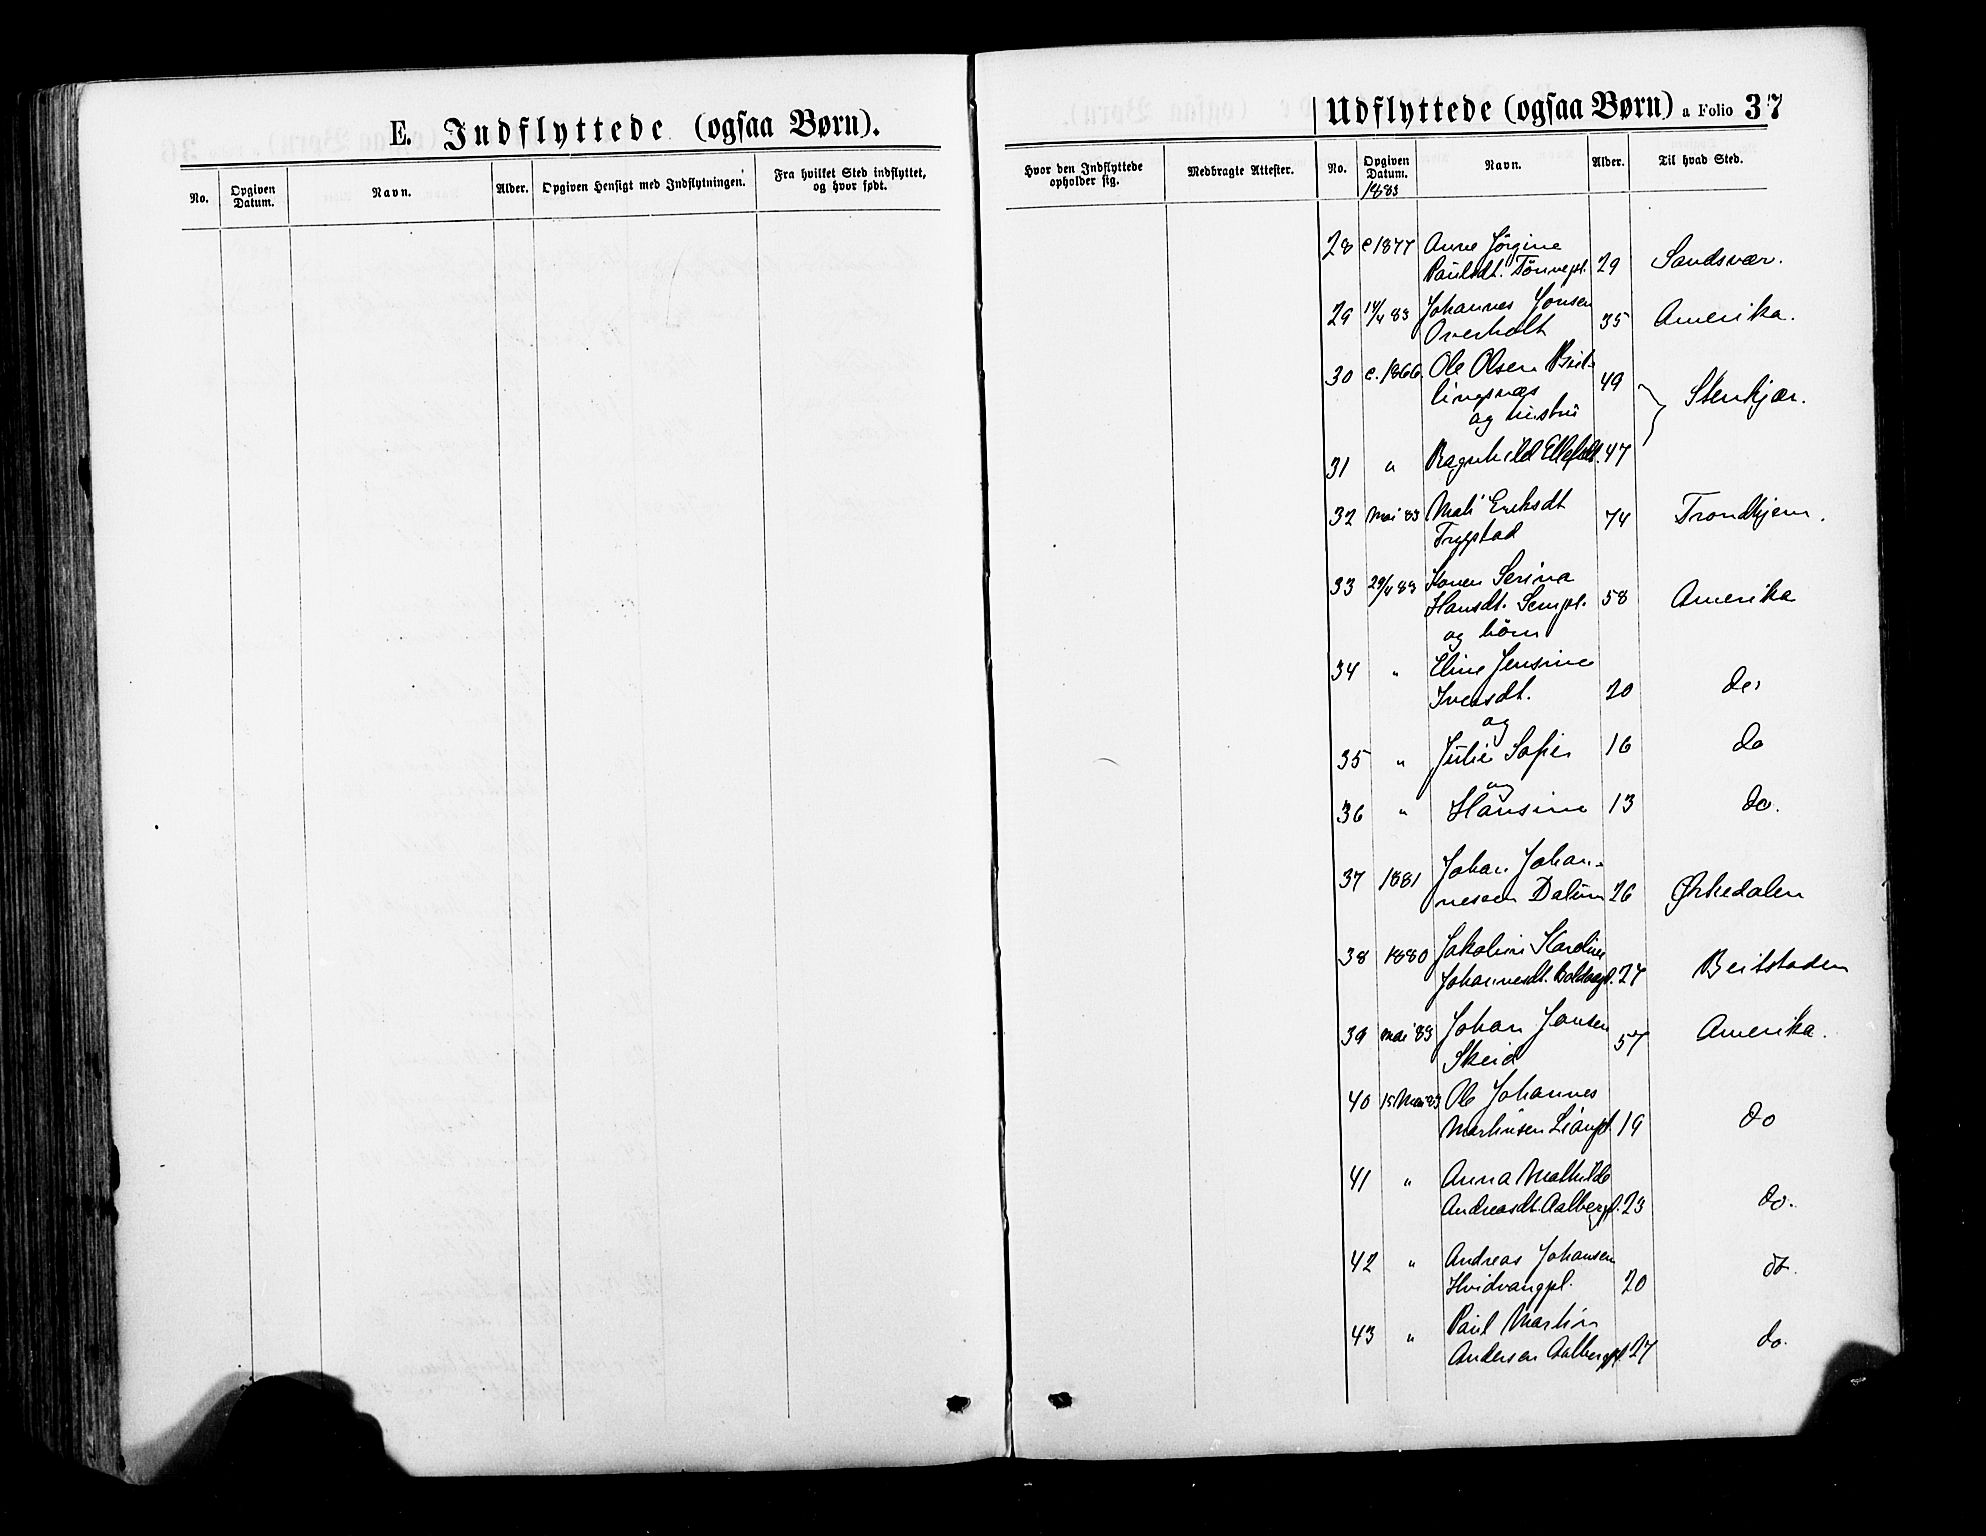 E. Indflyttede (ogsaa Børn).
No.
Opgiven Datum.
Navn.
Alder.
Opgiven Hensigt med Indflytningen.
Fra hvilket Sted indflyttet, og hvor født.
Hvor den Indflyttede opholder sig.
Medbragte Attester.
Udflyttede (ogsaa Børn) a Folio 37
No.
Opgiven Datum.
Navn.
Alder.
Til hvad Sted.
1883
28 c 1877 Anne Jørgine
Paulsdt. Tønnepl. 29 Sandsvær.
29 14/4 83 Johannes Jonsen
Overholt 35 Amerika.
30 c. 1866. Ole Olsen Brei-
lingsnæs 49 Stenkjær.
og hustru
31 " Ragnhild Ellefsdt. 47
32 Mai 83 Mali Eriksdt
Trygstad 74 Trondhjem.
33 29/4 83 Konen Serina
Hansdt. Sempl. 58 Amerika
og børn
34 " Eline Jensine
Iversdt. 20 do
og
35 " Julie Sofie 16 do
og
36 " Hansine 13 do.
37 1881 Johan Johan-
nesen Dalum 26 Ørkedalen
38 1880 Jakobine Karoline
Johannesdt. 27 Beitstaden
39 Mai 83 Johan Jonsen
Skeid 57 Amerika.
40 15 Mai 83 Ole Johannes
Martinsen Lianpl 19 do
41 " Anna Mathilde
Andreasdt. Aalbergpl. 23 do.
42 " Andreas Johansen
Hvidvangpl. 20 do.
43 " Paul Martin
Andersen Aalbergpl 27 do.